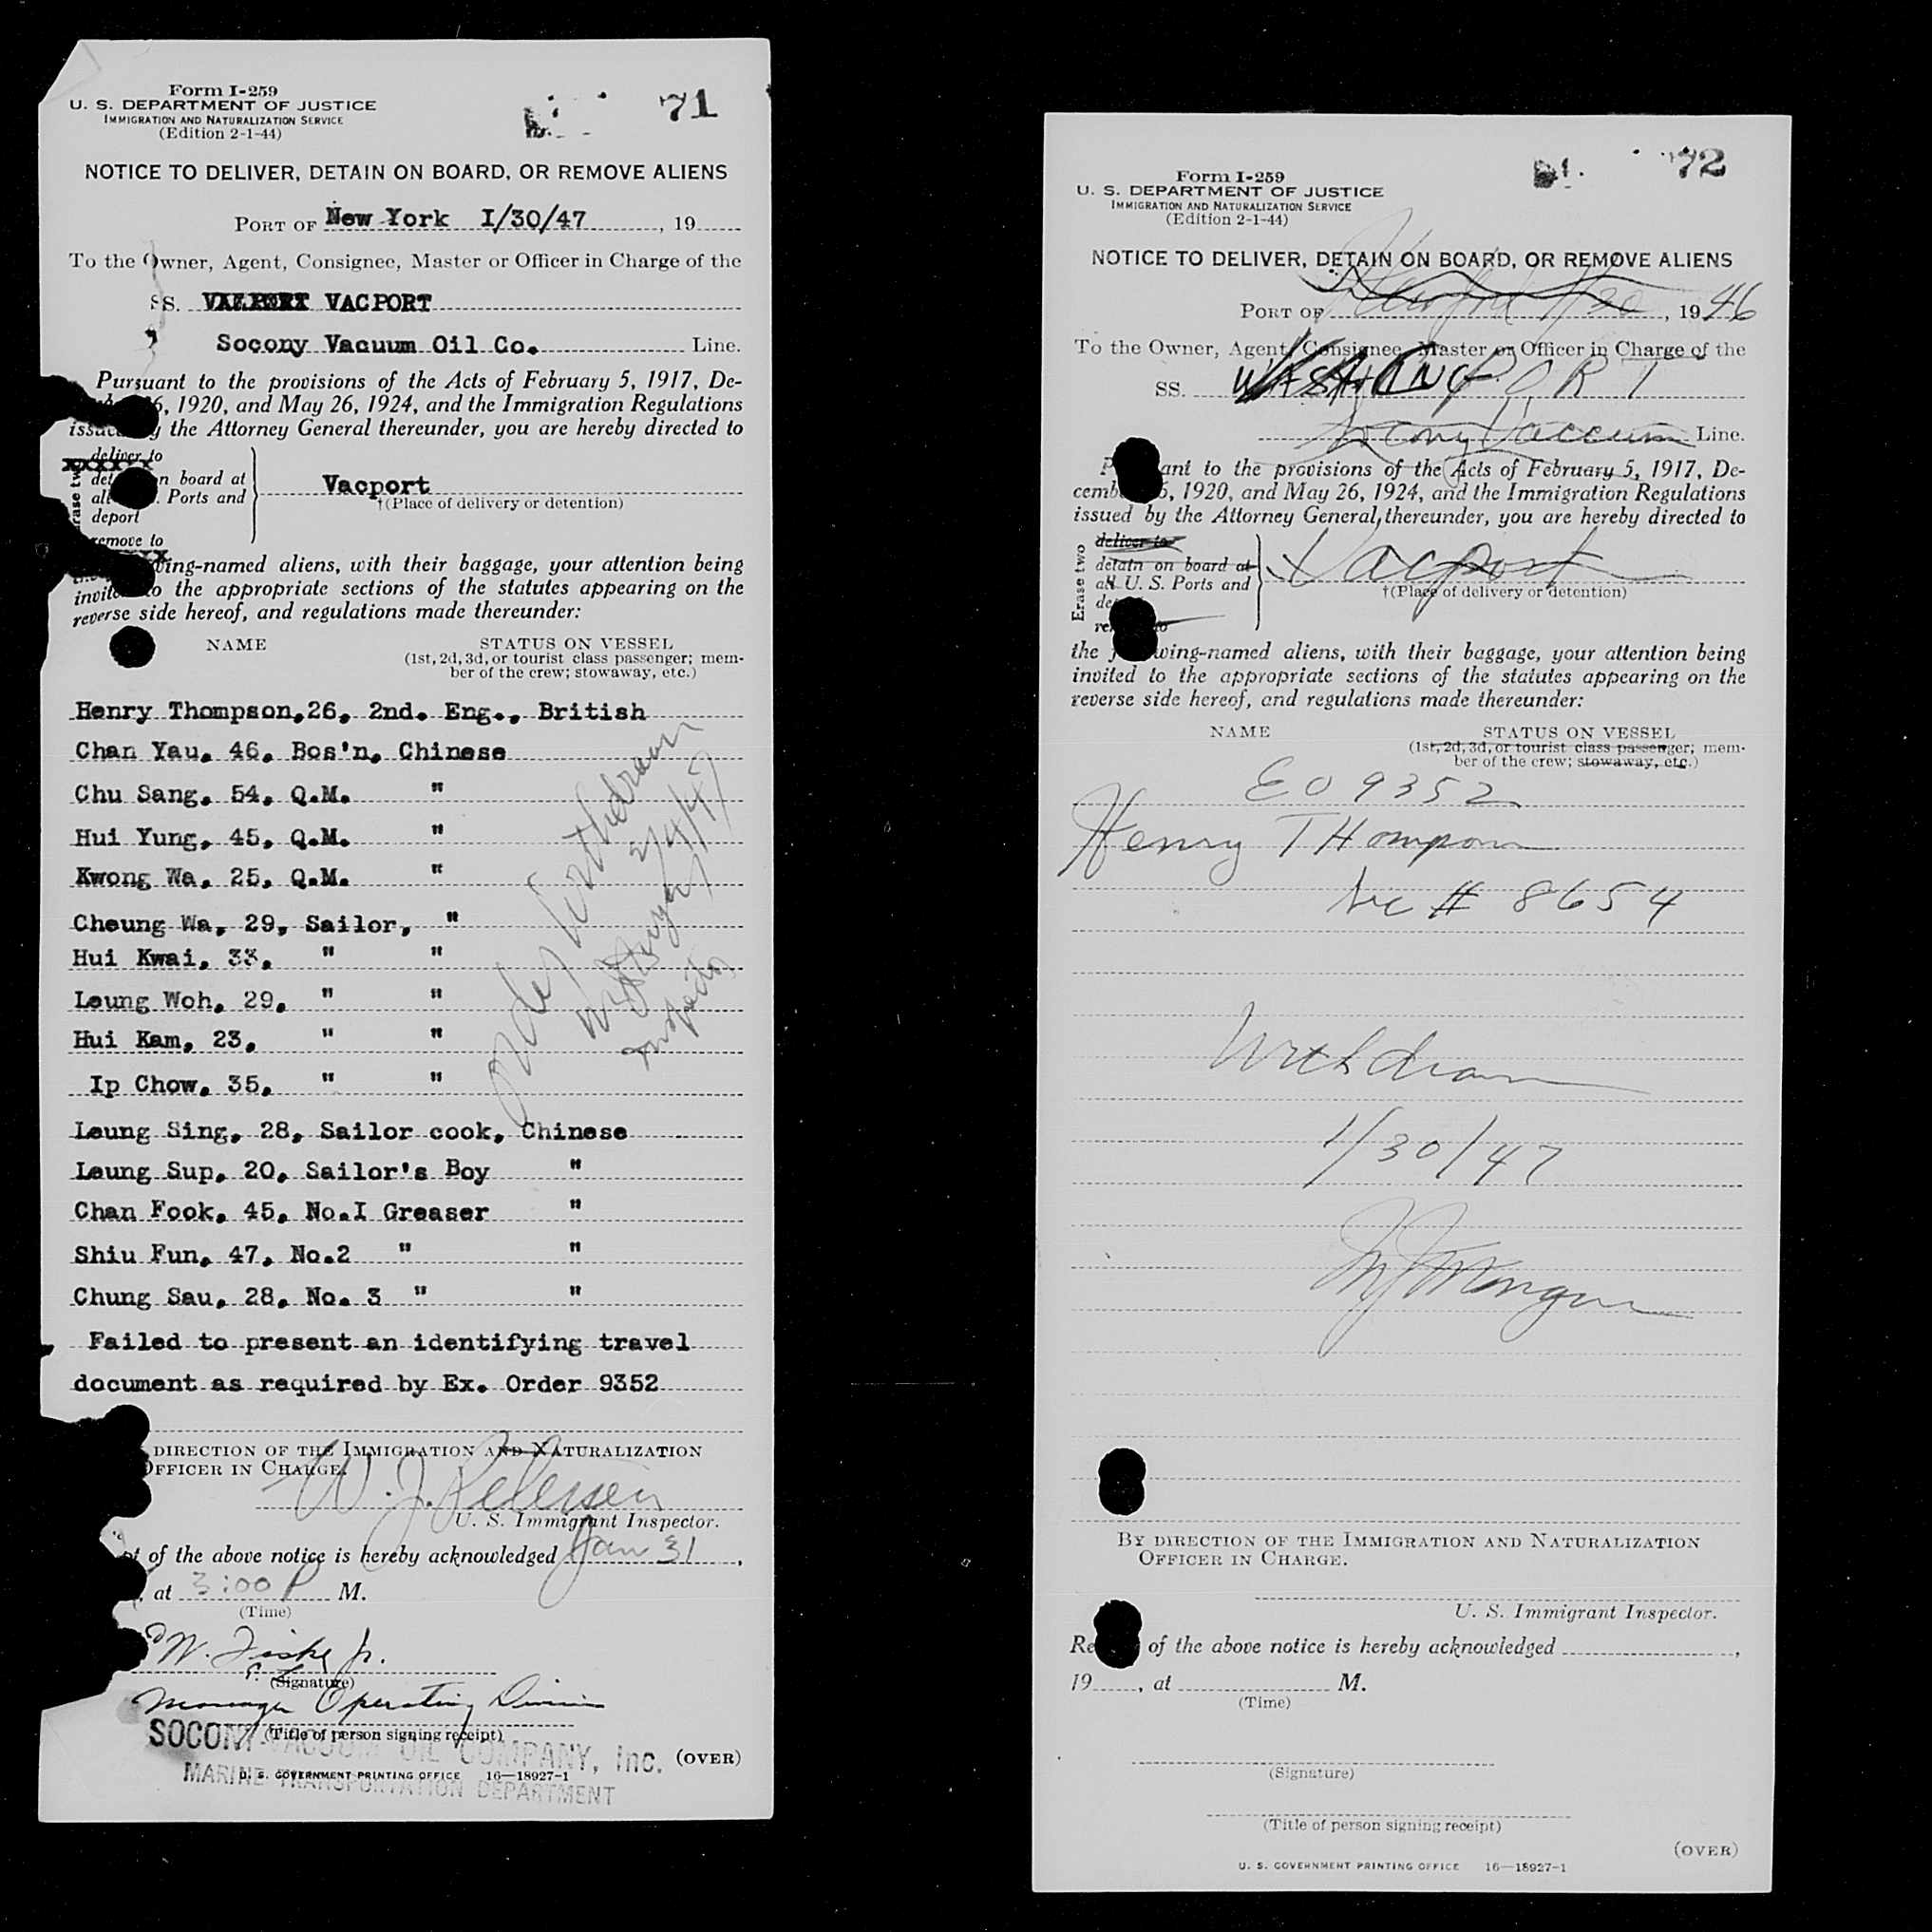 Form I-259
U. S. DEPARTMENT OF JUSTICE
IMMIGRATION AND NATURALIZATION SERVICE
(Edition 2-1-44)
71
NOTICE TO DELIVER, DETAIN ON BOARD, OR REMOVE ALIENS
PORT OF New York I/30/47, 19
To the Owner, Agent, Consignee, Master or Officer in Charge of the
SS. VACPORT
Socony Vacuum Oil Co. Line.
Pursuant to the provisions of the Acts of February 5, 1917, De-
6, 1920, and May 26, 1924, and the Immigration Regulations
issued by the Attorney General thereunder, you are hereby directed to
deliver to
n board at
Ports and
deport
remove to
Vacport
†(Place of delivery or detention)
wing-named aliens, with their baggage, your attention being
to the appropriate sections of the statutes appearing on the
reverse side hereof, and regulations made thereunder:
NAME STATUS ON VESSEL
(1st, 2d, 3d, or tourist class passenger; mem-
ber of the crew; stowaway, etc.)
Henry Thompson,26, 2nd. Eng., British
Chan Yau, 46, Bos'n, Chinese
Chu Sang, 54, Q.M. "
Hui Yung, 45, Q.M. "
Kwong Wa, 25, Q.M. "
Cheung Wa, 29, Sailor, "
Hui Kwai, 33, " "
Leung Woh, 29, " "
Hui Kam, 23, " "
Ip Chow, 35, " "
Leung Sing, 28, Sailor cook, Chinese
Leung Sup, 20, Sailor's Boy "
Chan Fook, 45, No.I Greaser "
Shiu Fun, 47, No.2 " "
Chung Sau, 28, No. 3 " "
Failed to present an identifying travel
document as required by Ex. Order 9352
order withdrawn
2/4/47
Inspector
DIRECTION OF THE IMMIGRATION AND NATURALIZATION
OFFICER IN CHARGE.
W. J. Petersen
U. S. Immigrant Inspector.
of the above notice is hereby acknowledged Jan 31,
, at 3:00 P M.
(Time)
W. Fiske Jr.
(Signature)
Manager Operating Division
(Title of person signing receipt)
SOCONY-VACUUM OIL COMPANY, Inc.
MARINE TRANSPORTATION DEPARTMENT
(OVER)
U. S. GOVERNMENT PRINTING OFFICE 16—18927-1
Form I-259
U. S. DEPARTMENT OF JUSTICE
IMMIGRATION AND NATURALIZATION SERVICE
(Edition 2-1-44)
72
NOTICE TO DELIVER, DETAIN ON BOARD, OR REMOVE ALIENS
PORT OF 1/30, 1946
To the Owner, Agent, Consignee, Master or Officer in Charge of the
SS. PORT
Socony Vaccum Line.
Pursuant to the provisions of the Acts of February 5, 1917, De-
cember 5, 1920, and May 26, 1924, and the Immigration Regulations
issued by the Attorney General, thereunder, you are hereby directed to
Erase two
deliver to
detain on board at
all U. S. Ports and
Vacport
†(Place of delivery or detention)
the following-named aliens, with their baggage, your attention being
invited to the appropriate sections of the statutes appearing on the
reverse side hereof, and regulations made thereunder:
NAME STATUS ON VESSEL
(1st, 2d, 3d, or tourist class passenger; mem-
ber of the crew; stowaway, etc.)
EO 9352
Henry THompson
# 8654
Withdrawn
1/30/47
BY DIRECTION OF THE IMMIGRATION AND NATURALIZATION
OFFICER IN CHARGE.
U. S. Immigrant Inspector.
of the above notice is hereby acknowledged ,
19 , at M.
(Time)
(Signature)
(Title of person signing receipt)
(OVER)
U. S. GOVERNMENT PRINTING OFFICE 16—18927-1